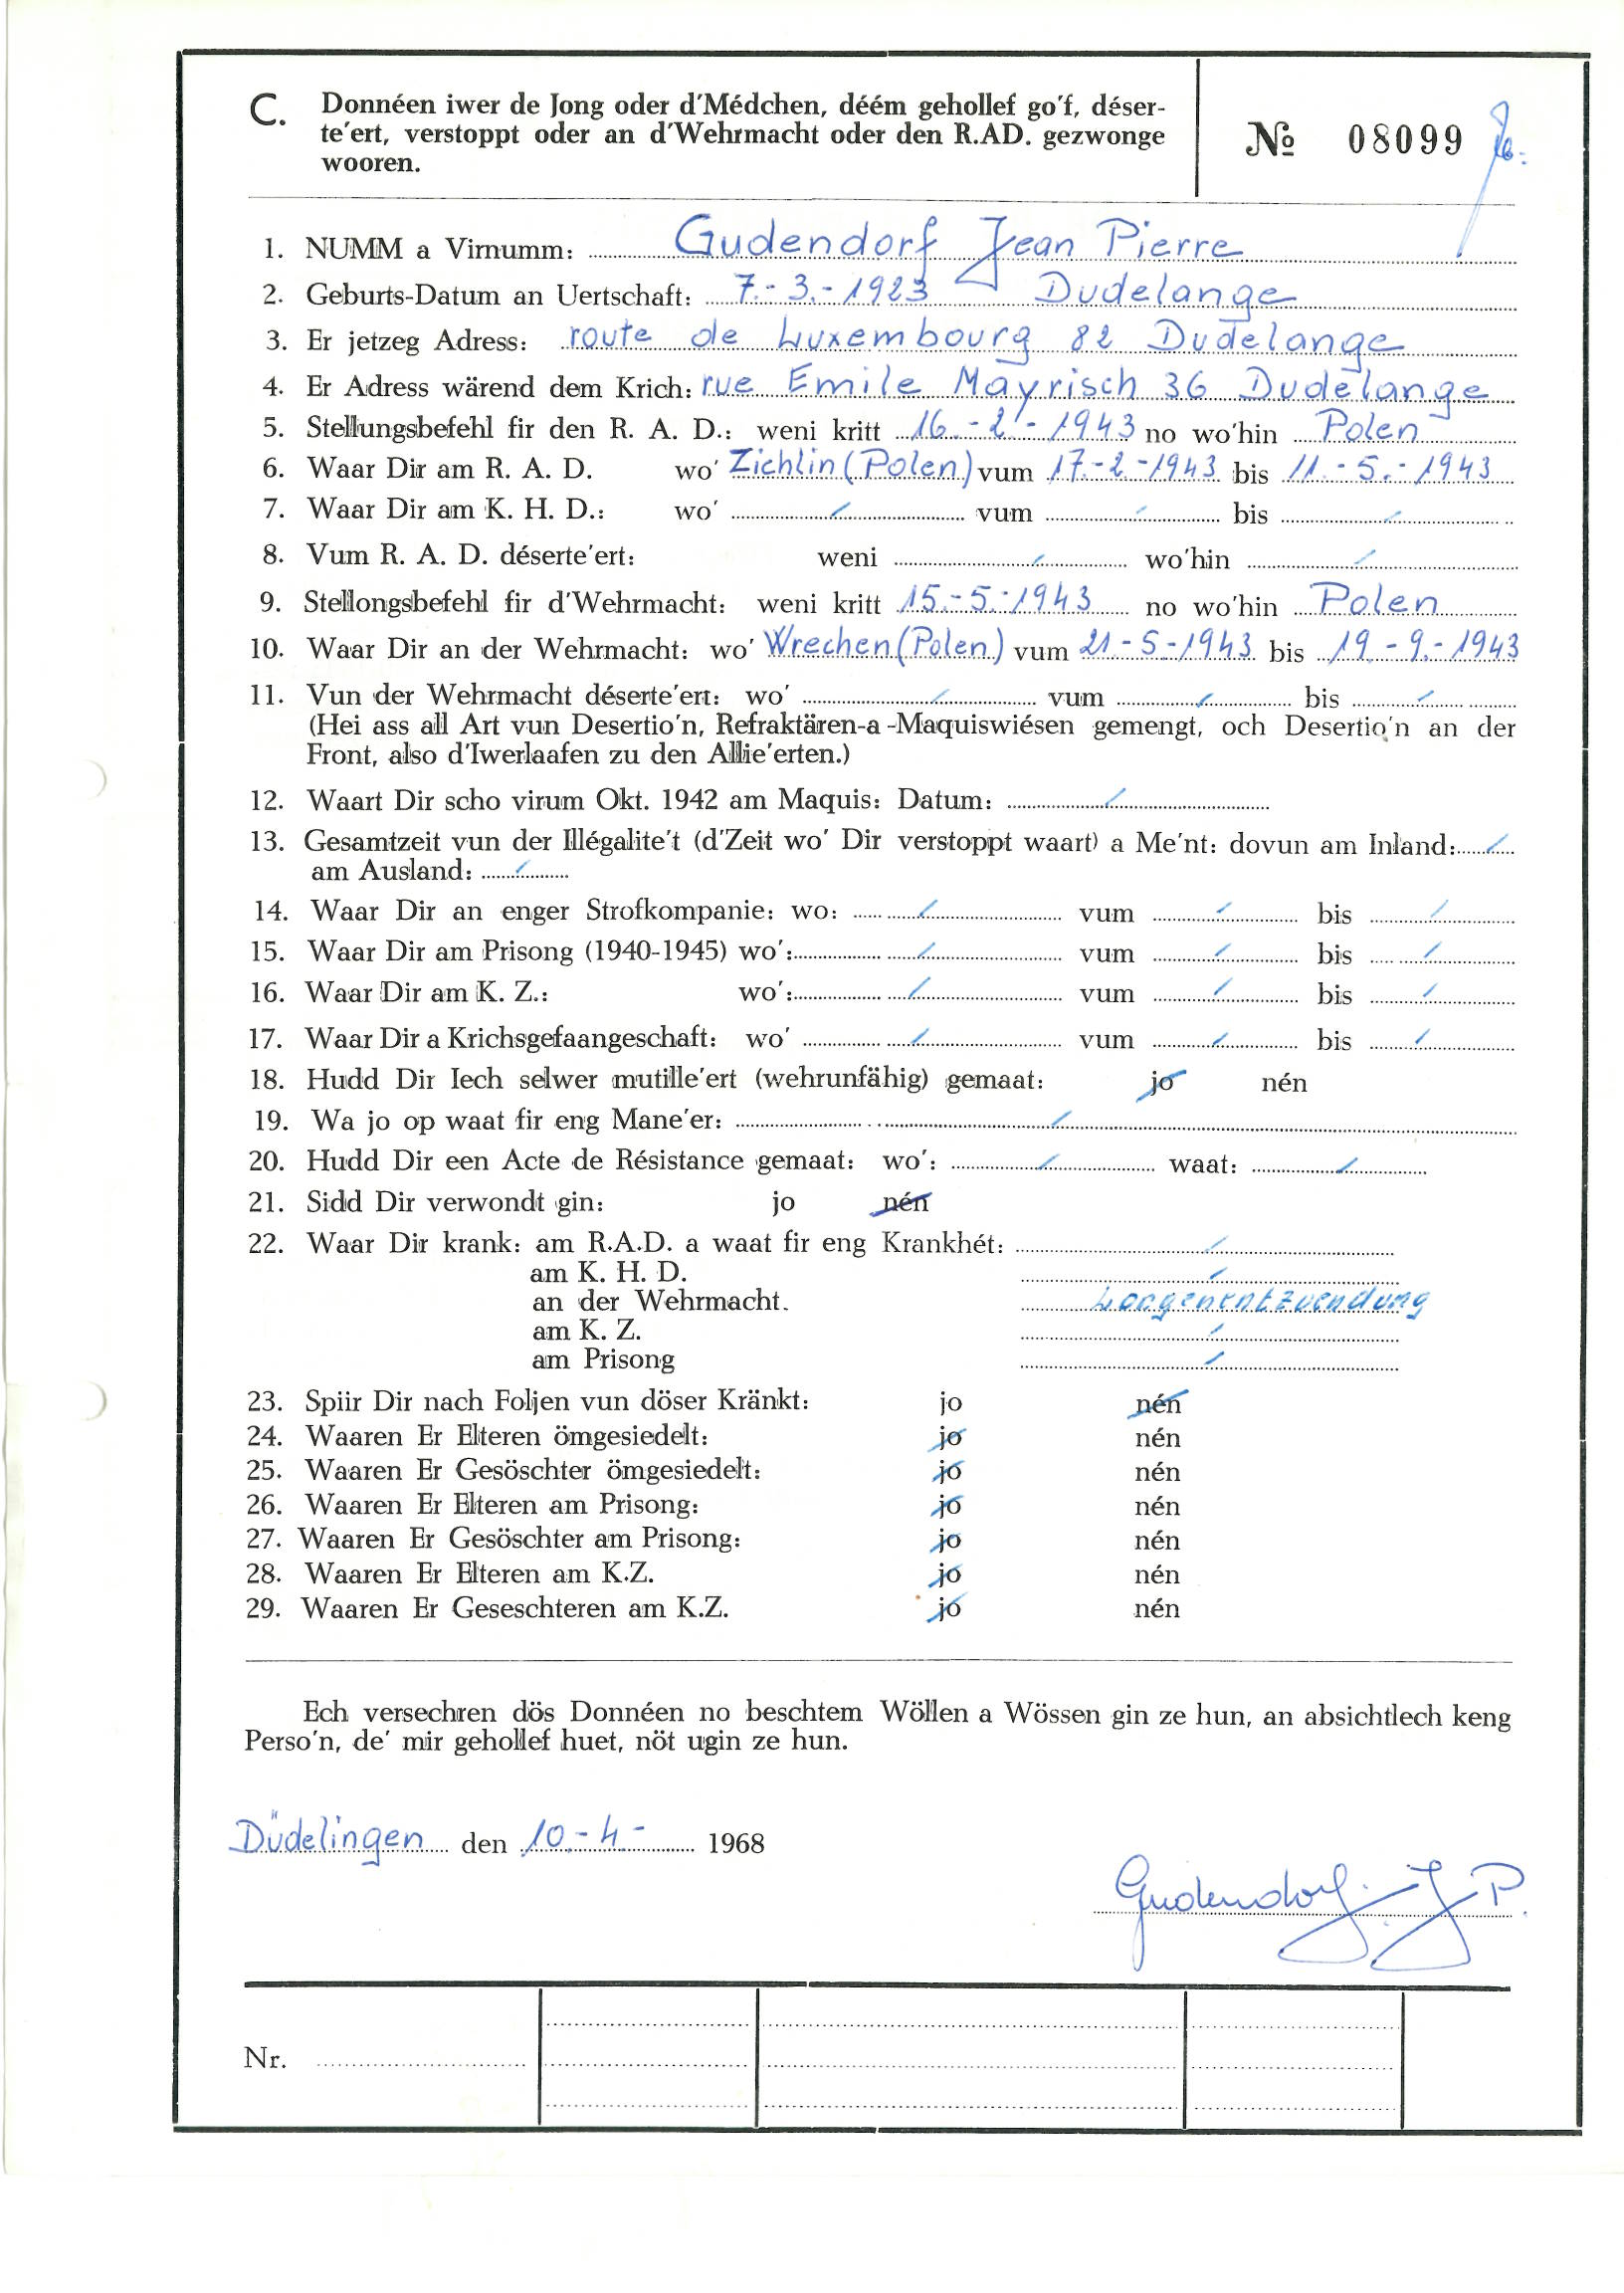 C. Donnéen iwer de Jong oder d'Médchen, déém gehollef go'f, déser-
te'ert, verstoppt oder an d'Wehrmacht oder den R.AD. gezwonge
wooren.
№ 08099
1. NUMM a Virnumm: Gudendorf Jean Pierre
2. Geburts-Datum an Uertschaft: 7.-3.-1923 Dudelange
3. Er jetzeg Adress: route de Luxembourg 82 Dudelange
4. Er Adress wärend dem Krich: rue Emile Mayrisch 36 Dudelange
5. Stellungsbefehl fir den R. A. D.: weni kritt 16.-2.-1943 no wo'hin Polen
6. Waar Dir am R. A. D. wo' Zichlin (Polen) vum 17.-2.-1943 bis 11.-5.-1943
7. Waar Dir am K. H. D.: wo' / vum / bis /
8. Vum R. A. D. déserte'ert: weni / wo'hin /
9. Stellongsbefehl fir d'Wehrmacht: weni kritt 15.-5.-1943 no wo'hin Polen
10. Waar Dir an der Wehrmacht: wo' Wrechen (Polen) vum 21.-5.-1943 bis 19.-9.-1943
11. Vun der Wehrmacht déserte'ert: wo' / vum / bis /
(Hei ass all Art vun Desertio'n, Refraktären-a-Maquiswiésen gemengt, och Desertio'n an der
Front, also d'Iwerlaafen zu den Allie'erten.)
12. Waart Dir scho virum Okt. 1942 am Maquis: Datum: /
13. Gesamtzeit vun der Illégalite't (d'Zeit wo' Dir verstoppt waart) a Me'nt: dovun am Inland: /
am Ausland: /
14. Waar Dir an enger Strofkompanie: wo: / vum / bis /
15. Waar Dir am Prisong (1940-1945) wo': / vum / bis /
16. Waar Dir am K. Z.: wo': / vum / bis /
17. Waar Dir a Krichsgefaangeschaft: wo' / vum / bis /
18. Hudd Dir Iech selwer mutille'ert (wehrunfähig) gemaat: jo nén
19. Wa jo op waat fir eng Mane'er: /
20. Hudd Dir een Acte de Résistance gemaat: wo': / waat: /
21. Sidd Dir verwondt gin: jo nén
22. Waar Dir krank: am R.A.D. a waat fir eng Krankhét: /
am K. H. D. /
an der Wehrmacht. Loogenentzuendung
am K. Z. /
am Prisong /
23. Spiir Dir nach Foljen vun döser Kränkt: jo nén
24. Waaren Er Elteren ömgesiedelt: jo nén
25. Waaren Er Gesöschter ömgesiedelt: jo nén
26. Waaren Er Elteren am Prisong: jo nén
27. Waaren Er Gesöschter am Prisong: jo nén
28. Waaren Er Elteren am K.Z. jo nén
29. Waaren Er Geseschteren am K.Z. jo nén
Ech versechren dös Donnéen no beschtem Wöllen a Wössen gin ze hun, an absichtlech keng
Perso'n, de' mir gehollef huet, nöt ugin ze hun.
Düdelingen den 10.-4.- 1968
Gudendorf. J P.
Nr.